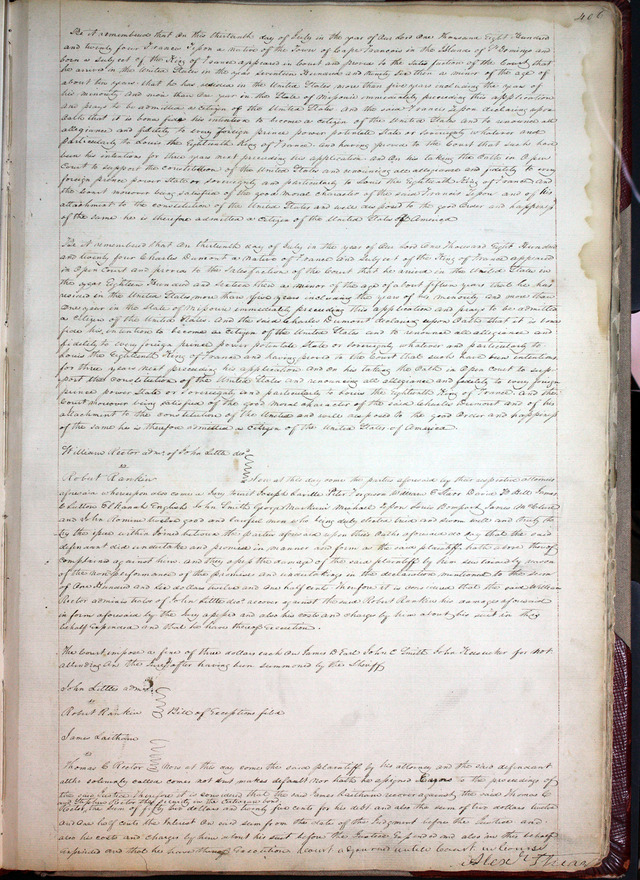 406
Be it remembered that on this thirteenth day of July in the year of our Lord One Thousand Eight Hundred
and twenty four Francis Tipon a native of the Town of Cape Francois in the Island of St Domingo and
born a subject of the King of France appeared in Court and proved to the satisfaction of the Court that
he arrived in the United States in the year seventeen Hundred and ninety then a minor of the age of
about ten years that he has resided in the United States more than five years including the years of
his minority and more than one year in the State of Missouri immediately preceding this application
and prays to be admitted a citizen of the United States and the said Francis Tipon declaring upon
oath that it is bona fide his intention to become a citizen of the United States and to renounce all
allegiance and fidelity to every foreign prince power potentate State or sovereignty whatever and
particularly to Louis the Eighteenth King of France and having proved to the Court that such have
been his intentions for three years next preceding his application and on his taking the Oath in Open
Court to support the constitution of the United States and renouncing all allegiance and fidelity to every
foreign prince power State or sovereignty and particularly to Louis the Eighteenth King of France and
the Court moreover being satisfied of the good moral character of the said Francis Tipon and of his
attachment to the constitution of the United States and well disposed to the good Order and happiness
of the same he is therefore admitted a citizen of the United States of America
Be it remembered that on thirteenth day of July in the year of our Lord One Thousand Eight Hundred
and twenty four Charles Dumont a native of France and subject of the King of France appeared
in Open Court and proved to the satisfaction of the Court that he arrived in the United States in
the year Eighteen Hundred and sixteen then a minor of the age of about fifteen years that he has
resided in the United States more than five years including the years of his minority and more than
one year in the State of Missouri immediately preceding this application and prays to be admitted
a citizen of the United States and the said Charles Dumont declaring upon Oath that it is bona
fides his intention to become a citizen of the United States and to renounce all allegiance and
fidelity to every foreign prince power potentate State or sovereignty whatever and particularly to
Louis the Eighteenth King of France and having proved to the Court that such have been intentions
for three years next preceding his application and on his taking the Oath in Open Court to sup-
port the Constitution of the United States and renouncing all allegiance and fidelity to every foreign
prince power State or sovereignty and particularly to Louis the Eighteenth King of France and the
Court moreover being satisfied of the good moral character of the said Charles Dumont and of his
attachment to the constitution of the United and well disposed to the good Order and happiness
of the same he is therefore admitted a citizen of the United States of America
William Rector admr of John Little decd
vs
Robert Rankin Now at this day come the parties aforesaid by their respective attornies
aforesaid whereupon also come a Jury to wit Joseph Peter Ferguson William C David B Hill James
English John Smith George Michael Tipon Louis Bompart James
and John twelve good and lawful men who being duly elected tried and sworn well and truly to
try the issue within joined between the parties aforesaid upon their oaths aforesaid do say that the said
defendant did undertake and promise in manner and form as the said plaintiff hath above thereof
complained against him and they assess the damage of the said plaintiff by him sustained by reason
of the non performance of the promises and undertakings in the declaration mentioned to the sum
of One Hundred and six dollars twelve and one half cents Therefore it is considered that the said William
Rector administrator of John Little decd recover against the said Robert Rankin his damages aforesaid
in form aforesaid by the Jury assessed and also his costs and charges by him about his suit in this
behalf expended and that he have thereof execution
The Court impose a fine of three dollars each on James B Earl John C Smith John for not
attending on the Jury after having been summoned by the Sheriff
John Littles admr
vs
Robert Rankin Bill of Exceptions filed
James
vs
Thomas C Rector Now at this day comes the said plaintiff by his attorney and the said defendant
altho solemnly called comes not but makes default nor hath he assigned to the proceedings of
the said Justice Therefore it is considered that the said James recover against the said Thomas C
and Stephen Rector his security in the bond
Rector the sum of fifty two dollars and twenty five cents for his debt and also the sum of two dollars twelve
and one half cents the interest on said sum from the date of the Judgment before the Justice and
also his costs and charges by him about his suit before the Justice Expended and also in this behalf
expended and that he have thereof Execution Court adjourned until Court in Course
Alexr Stuart